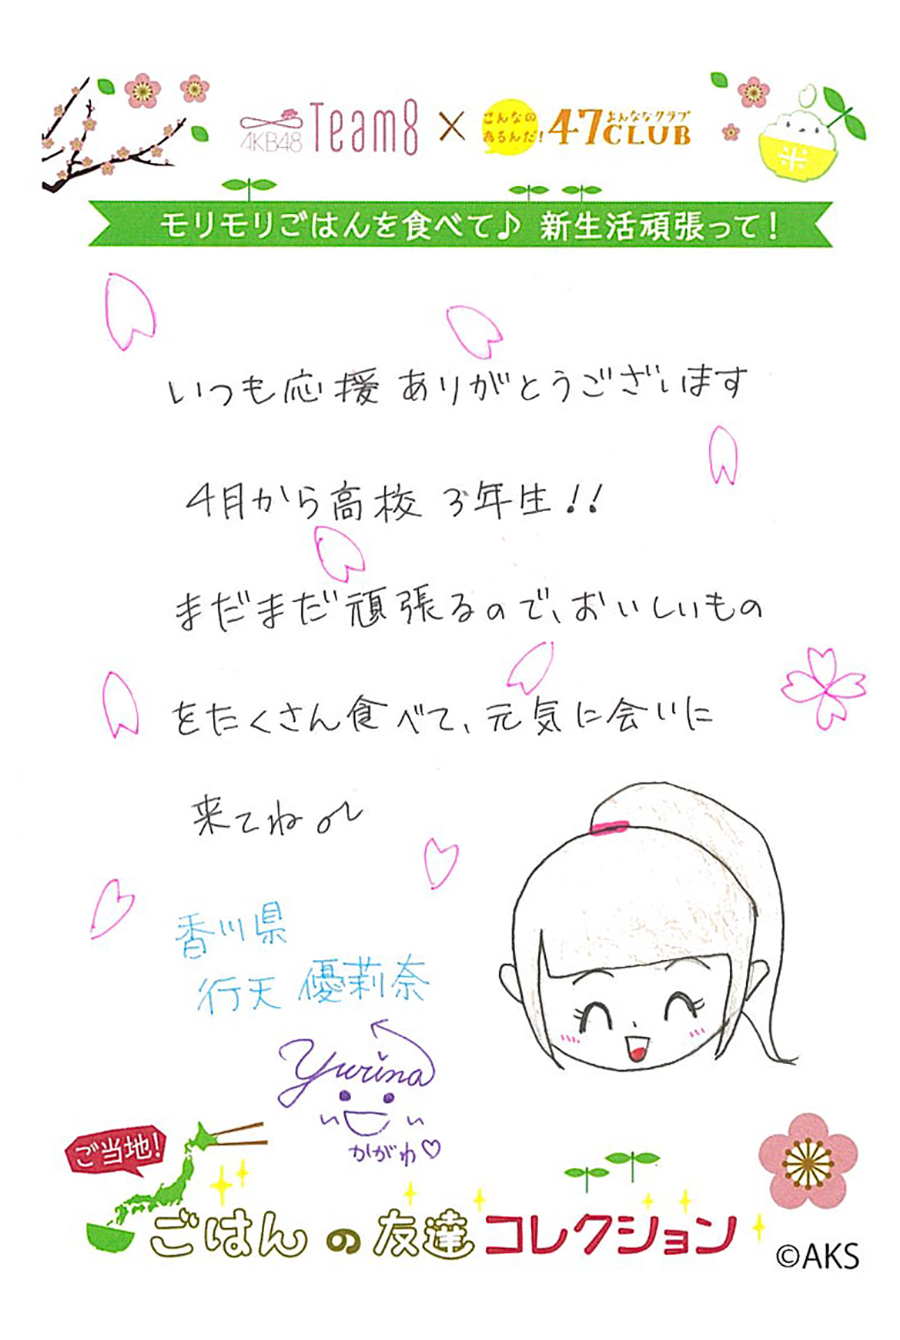 AKB48 Team8 × こんなの あるんだ! 47CLUB よんななクラブ
米
モリモリごはんを食べて♪ 新生活頑張って!
いつも応援ありがとうございます
4月から高校3年生!!
まだまだ頑張るので、おいしいもの
をたくさん食べて、元気に会いに
来てね
香川県
行天優莉奈
Yurina
かがわ♡
ご当地!
ごはんの友達コレクション
©AKS